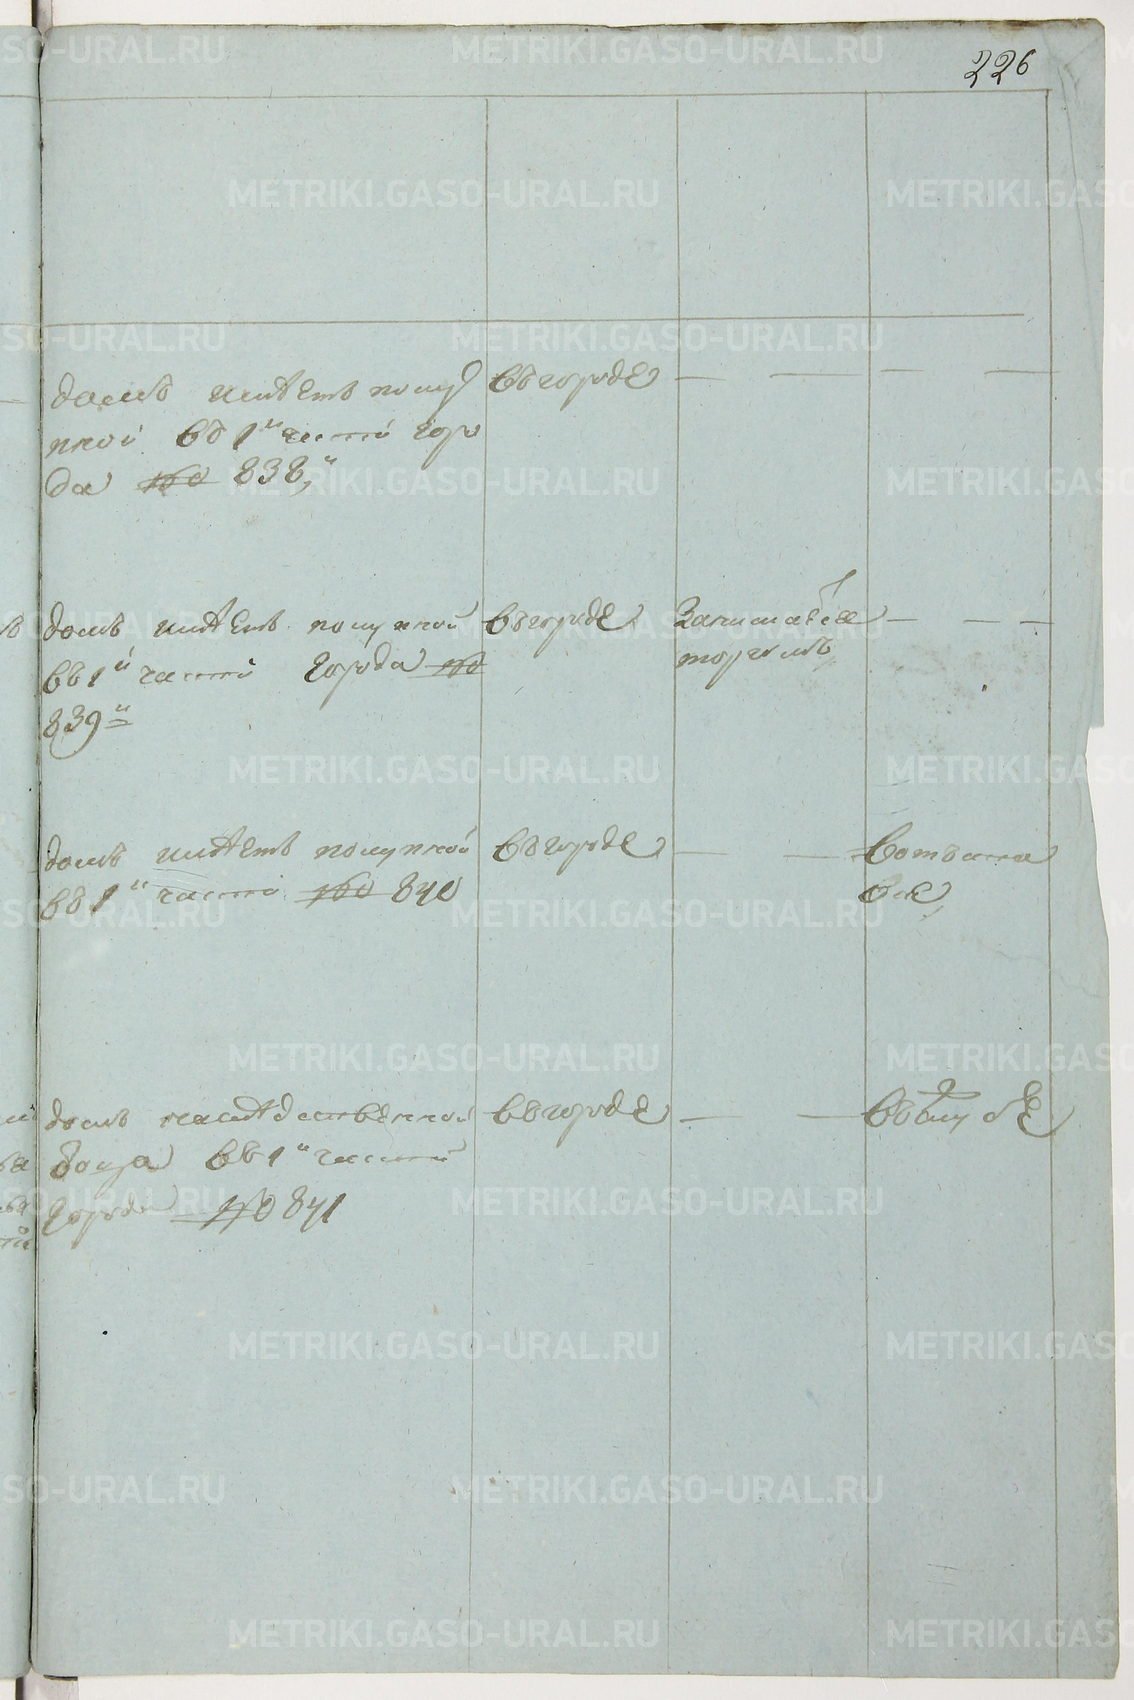 226
домъ имѣетъ покуп
ной въ 1й части горо
да № 838й
въ городе
домъ имѣетъ покупной
въ 1й части города №
839й
въ городе
Занимаеца
торгомъ
домъ имѣетъ покупной
въ 1й части № 840
въ городе
домъ наслѣдственной
въ 1й части
города № 841
въ городе
въ службе
METRIKI.GASO-URAL.RU